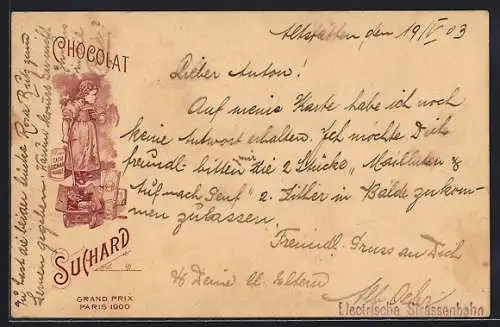 CHOCOLAT
SUCHARD
GRAND PRIX
PARIS 1900
Altstätten, den 19/IV 03
Lieber Anton!
Auf meine Karte habe ich noch
keine Antwort erhalten. Ich möchte Dich
freundl. bitten mir die 2 Stücke „Mailüfterl &
auf nach Genf" 2. Zither in Bälde zukom-
men zu lassen.
Freundl. Gruss an Dich
& Deine lb. Eltern
Electrische Strassenbahn
Du hast die beiden Stücke Rosa zum
Lernen gegeben